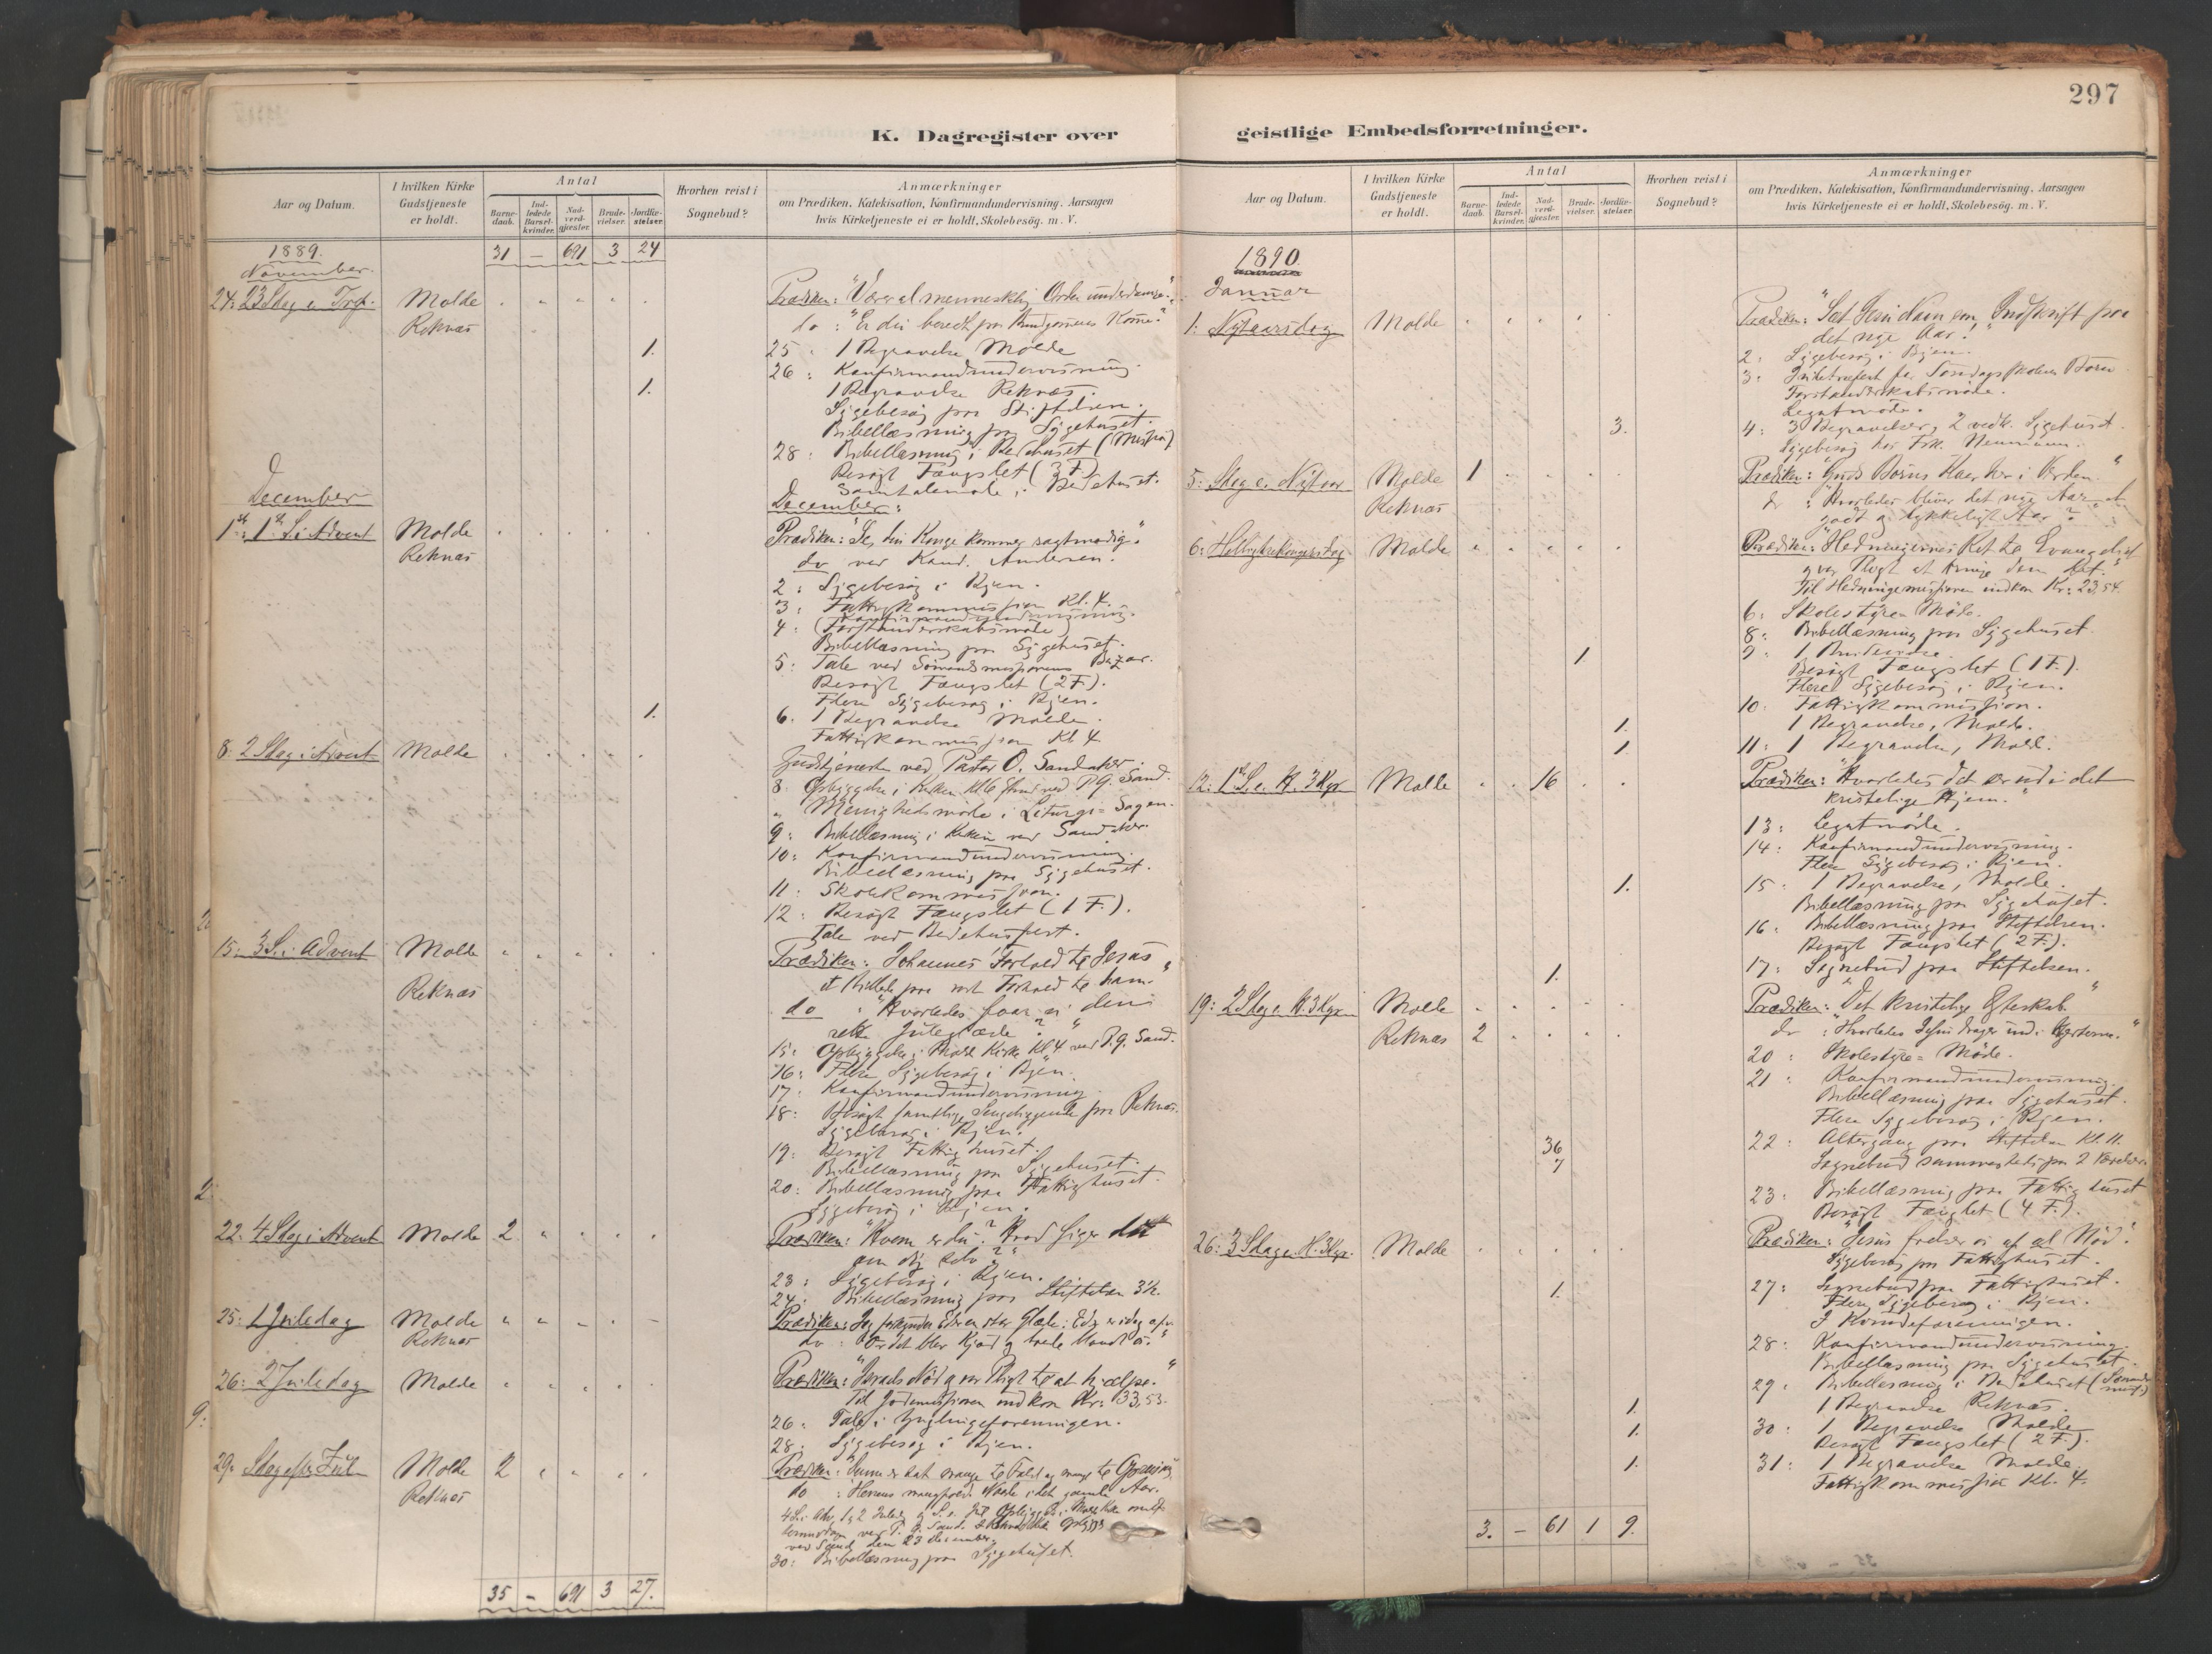 297
K. Dagregister over
Aar og Datum.
I hvilken Kirke Gudstjeneste er holdt.
Antal
Barne-daab.
Ind-ledede Barsel-kvinder.
Nad-verd-gjæster.
Brude-vielser.
Jordfæ-stelser.
Hvorhen reist i Sognebud?
Anmærkninger
om Prædiken, Katekisation, Konfirmandundervisning, Aarsagen
hvis Kirketjeneste ei er holdt, Skolebesög. m. V.
1889. 31 – 691 3 24
November.
24: 23 Sdag e. Tref. Molde Prædiken: "Være al menneskelig Orden underdanige."
Reknæs do : "Er du beredt paa Brudgommens Komme."
1. 25 : 1 Begravelse Molde
26 : Konfirmandundervisning.
1. 1 Begravelse Reknæs.
Sygebesøg paa Stiftelsen.
Bibellæsning paa Sygehuset.
28 : Bibellæsning i Bedehuset (Mission)
Besøgt Fængslet (3 F.)
Samtalemøde i Bedehuset.
December December:
1ste: 1ste S. i Advent Molde Prædiken: "Se, din Konge kommer sagtmodig."
Reknæs do ved Kand. Andersen.
2 : Sygebesøg i Byen.
3 : Fattigkommission Kl. 4.
Konfirmandundervisning.
4 : (Forstanderskabsmøde)
Bibellæsning paa Sygehuset.
5 : Tale ved Sømandsmissionens Bazar.
Besøgt Fængslet (2 F).
Flere Sygebesøg i Byen.
1. 6. 1 Begravelse Molde.
Fattigkommission Kl 4
8: 2 Sdag i Advent Molde Gudstjeneste ved Pastor O. Sandaker.
8 Opbyggelse i Kirken Kl 6 ved P.G. Sand.
" Menighedsmøde i Liturgi-Sagen.
9 : Bibellæsning i Kirken ved Sandaker.
10 : Konfirmandundervisning.
Bibellæsning paa Sygehuset.
11 : Skolekommission.
12 : Besøgt Fængslet (1 F.).
Tale ved Bedehusfest.
15: 3 S. i Advent Molde Prædiken: "Johannes' Forhold til Jesus
Reknæs et Billede paa vort Forhold til ham.
do : "Hvorledes faar vi den
rette Juleglæde?"
15: Opbyggelse i Molde Kirke Kl 4 ved P.G. Sand.
16: Flere Sygebesøg i Byen.
17: Konfirmandundervisning
18: Besøgt samtlige Sengeliggende paa Reknæs.
Sygebesøg i Byen.
19: Besøgt Fattighuset.
Bibellæsning paa Sygehuset.
20: Bibellæsning paa Fattighuset.
Sygebesøg i Byen.
22: 4 Sdag i Advent Molde 2 Prædiken: "Hvem er du? Hvad siger du
om dig selv?"
23: Sygebesøg i Byen.
24: Bibellæsning paa Stiftelsen 3½.
25: 1 Juledag Molde Prædiken: Jeg forkynder Eder en stor Glæde: Eder er idag
Reknæs do : "Ordet blev Kjød og boede blandt os."
26: 2 Juledag Molde Prædiken: "Israels Nød og vor Pligt til at hjælpe."
Til Jødemissionen indkom Kr: 33,53.
26: Tale i Ynglingeforeningen.
28: Sygebesøg i Byen.
29: Sdag efter Jul Molde 2 Prædiken: "Denne er sat mange til Fald og mange til Opreisning"
Reknæs do : Herrens mangfoldige Naade i det gamle Aar.
4 S. i Adv, 1 & 2 Juledag & S. e. Jul Opbyggelse i Molde Kirke
ved P. G. Sand
ved Sand den 23 December.
30: Bibellæsning paa Sygehuset.
35 – 691 3 27.
geistlige Embedsforretninger.
Aar og Datum.
I hvilken Kirke Gudstjeneste er holdt.
Antal
Barne-daab.
Ind-ledede Barsel-kvinder.
Nad-verd-gjæster.
Brude-vielser.
Jordfæ-stelser.
Hvorhen reist i Sognebud?
Anmærkninger
om Prædiken, Katekisation, Konfirmandundervisning, Aarsagen
hvis Kirketjeneste ei er holdt, Skolebesög. m. V.
1890.
Januar
1: Nytaarsdag Molde Prædiken: "Sæt Jesu Navn som Indskrift paa
det nye Aar."
2: Sygebesøg i Byen.
3: Juletræfest for Søndagsskolens Børn
Forstanderskabsmøde.
Legatmøde.
3. 4: 3 Begravelser, 2 vedk. Sygehuset.
Sygebesøg hos Frk. Neumann.
5: Sdag e. Nytaar Molde 1 Prædiken: "Guds Børns Kaar her i Verden."
Reknæs do : "Hvorledes bliver det nye Aar et
godt og lykkeligt Aar?"
6: Helligtrekongersdag Molde Prædiken: "Hedningernes Ret til Evangeliet
og vor Pligt at bringe dem det."
Til Hedningemissionen indkom Kr: 23,54.
6: Skolestyre-Møde.
8: Bibellæsning paa Sygehuset.
1 9: 1 Brudevielse.
Besøgt Fængslet (1 F.).
Flere Sygebesøg i Byen.
10. Fattigkommission.
1. 1 Begravelse, Molde.
1 11: 1 Begravelse, Molde.
12: 1ste S. e. H. 3 Kgr Molde 16 Prædiken: "Hvorledes det ser ud i det
kristelige Hjem."
13: Legatmøde.
14: Konfirmandundervisning.
Flere Sygebesøg i Byen.
1. 15: 1 Begravelse, Molde.
Bibellæsning paa Sygehuset.
16: Bibellæsning paa Stiftelsen.
Besøgt Fængslet (2 F.).
1. 17: Sognebud paa Stiftelsen.
19: 2 Sdag e. H. 3 Kgr Molde Prædiken: "Det kristelige Ægteskab."
Reknæs 2 do : "Hvorledes Jesus drager ind i Hjerterne."
20 : Skolestyre-Møde.
21 : Konfirmandundervisning.
Bibellæsning paa Sygehuset.
Flere Sygebesøg i Byen.
36 22 : Altergang paa Stiftelsen Kl. 11.
7 Sognebud sammesteds paa 2 Værelser.
23: Bibellæsning paa Fattighuset
Besøgt Fængslet (4 F.).
26: 3 Sdag e. H. 3 Kgr. Molde Prædiken: "Jesus frelser os af al Nød".
Sygebesøg paa Fattighuset.
1. 27: Sognebud paa Fattighuset.
Flere Sygebesøg i Byen.
I Kvindeforeningen.
28: Konfirmandundervisning.
Bibellæsning paa Sygehuset.
29. Bibellæsning i Bedehuset (Sømandsmiss.)
1. 1 Begravelse Reknæs.
1. 30: 1 Begravelse Molde
Besøgt Fængslet (2 F.).
1. 31: 1 Begravelse Molde.
Fattigkommission Kl. 4.
3. – 61 1 9.